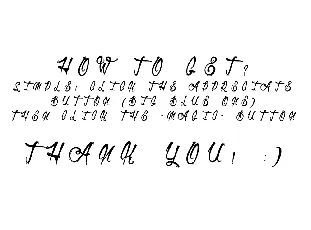 HOW TO GET?
SIMPLE: CLICK THE APPRECIATE
BUTTON (BIG BLUE ONE)
THEN CLICK THE "MAGIC" BUTTON
THANK YOU! :)